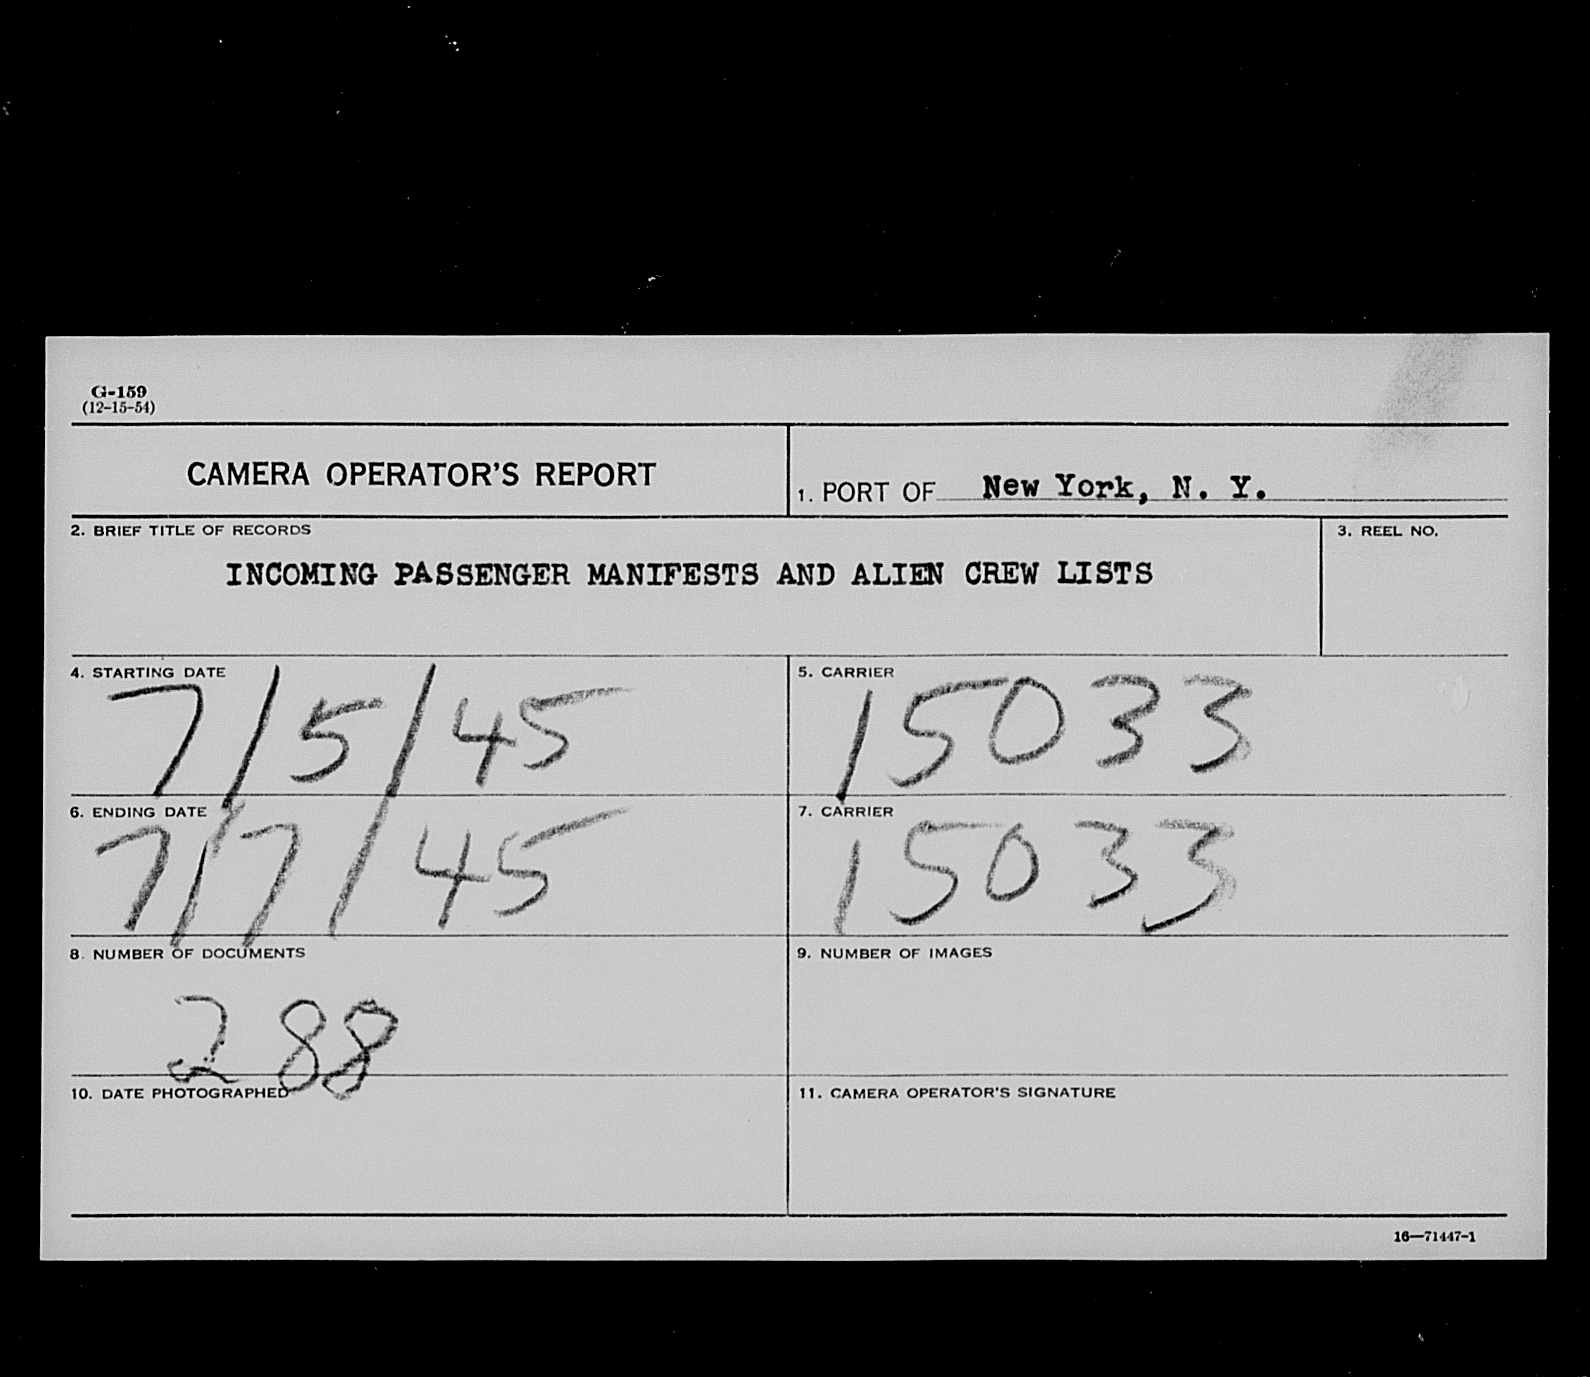 G-159
(12-15-54)
CAMERA OPERATOR'S REPORT
1. PORT OF New York, N. Y.
2. BRIEF TITLE OF RECORDS
INCOMING PASSENGER MANIFESTS AND ALIEN CREW LISTS
3. REEL NO.
4. STARTING DATE
7/5/45
5. CARRIER
15033
6. ENDING DATE
7/7/45
7. CARRIER
15033
8. NUMBER OF DOCUMENTS
288
9. NUMBER OF IMAGES
10. DATE PHOTOGRAPHED
11. CAMERA OPERATOR'S SIGNATURE
16—71447-1